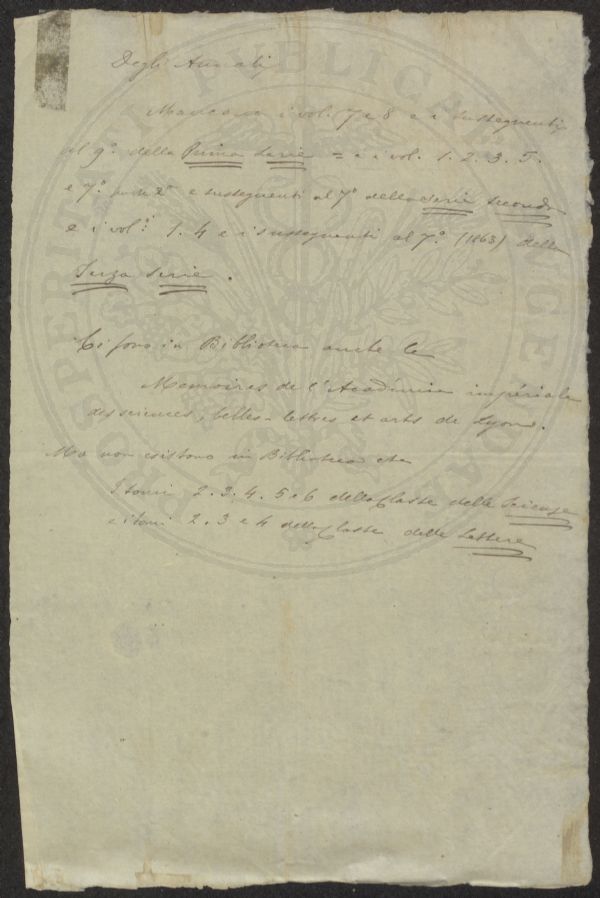 Degli Annali,
Mancano i vol. 7 e 8 e i susseguenti
al 9.º della Prima Serie = e i vol. 1. 2. 3. 5.
e 7.º 2ª e susseguenti al 7º della Serie Seconda
e i vol.i 1. 4 e i susseguenti al 7.º (1863) della
Terza Serie.
Ci sono in Biblioteca anche le
Memoires de l'Académie impériale
des sciences, belles-lettres et arts de Lyon.
Ma non esistono in Biblioteca che
I tomi 2. 3. 4. 5 e 6 della Classe delle Scienze
e i tomi 2. 3 e 4 della Classe delle Lettere
PROSPERITATI PUBLICAE